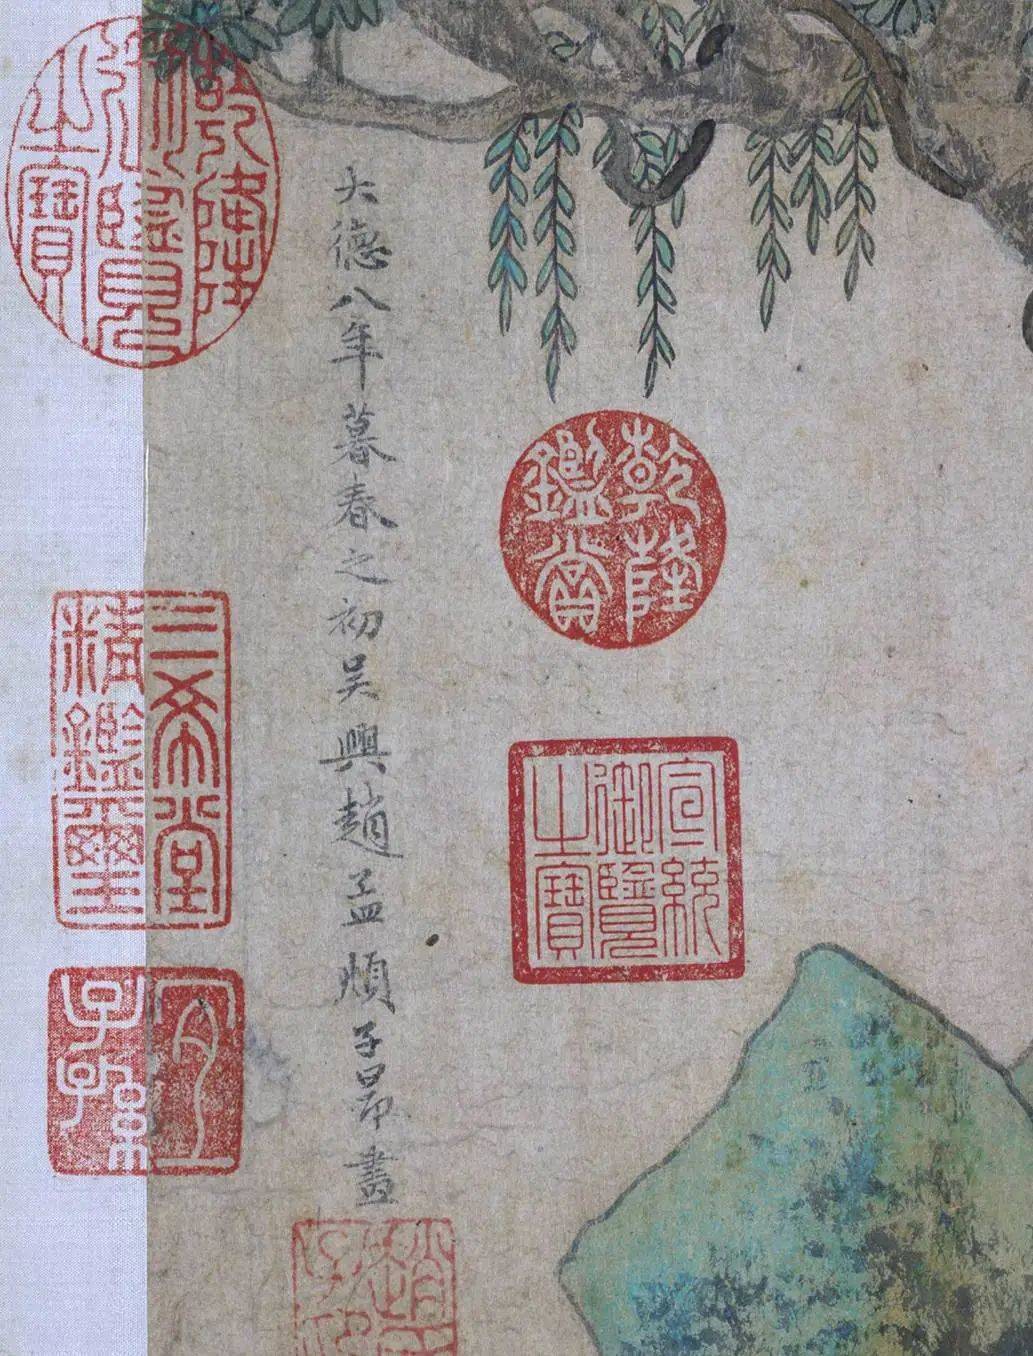 乾隆鑑賞
宣統御覽之寶
大德八年暮春之初吳興趙孟頫子昂畫
乾隆御覽之寶
三希堂精鑑璽
宜子孫